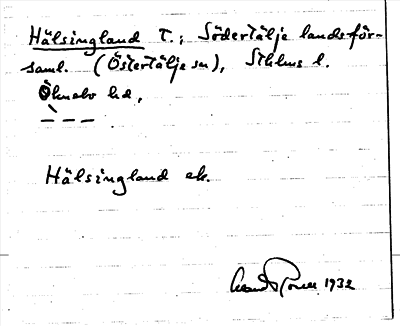 Hälsingland T.; Södertälje landsför-
saml. (Östertälje sn), Sthlms l.
Öknebo hd,
– – –
Hälsingland ek.
1932